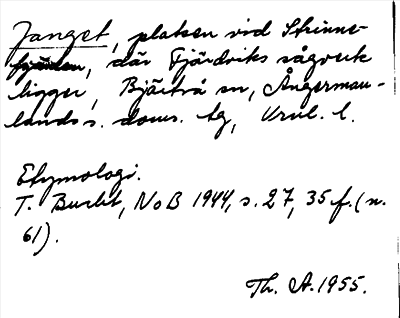 Janget, platsen vid Strinne-
fjärden, där Fjärdviks sågverk
ligger, Bjärtrå sn, Ångerman-
lands s. doms. tg, Vnl. l.
Etymologi.
T. Bucht, NoB 1944, s. 27, 35 f. (n.
61).
Th. A. 1955.